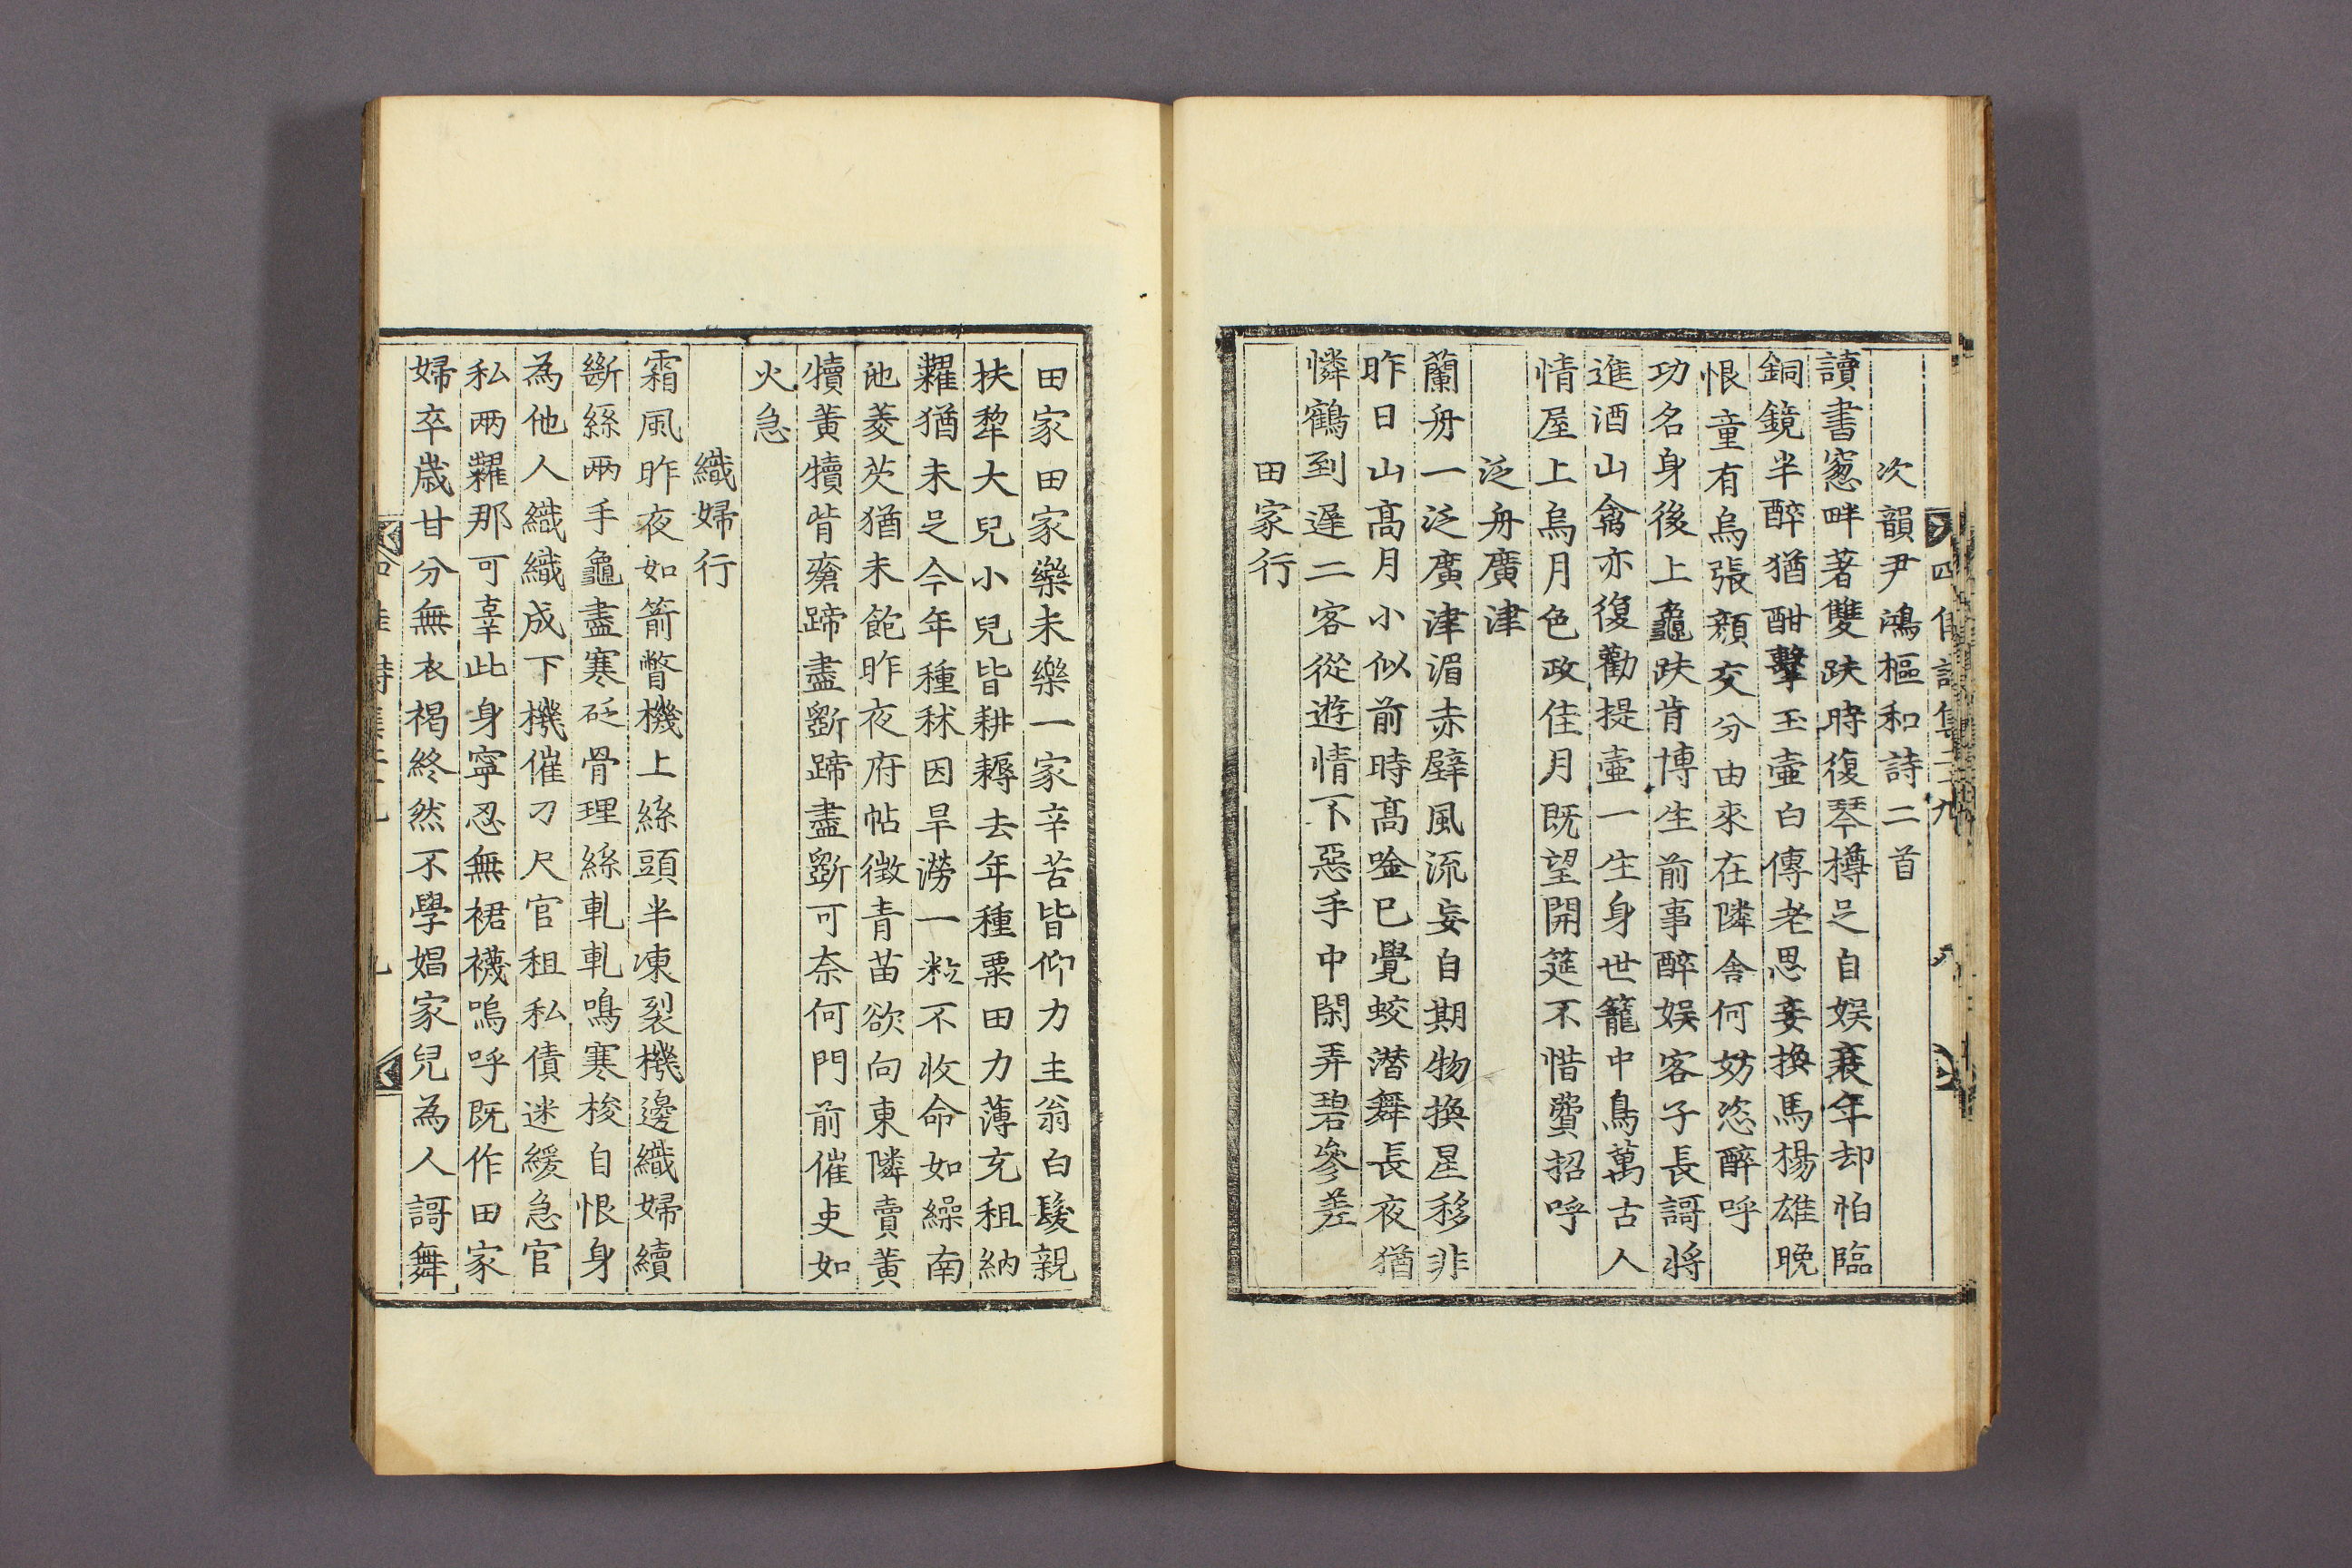 次韻尹鴻樞和詩二首
讀書窓畔著雙趺時復琴樽足自娛衰年却怕臨
銅鏡半醉猶酣擊玉壷白傳老思妾換馬楊雄晚
恨童有烏張顏交分由來在隣舎何妨恣醉呼
功名身後上龜趺肯博生前事醉娛客子長謌將
進酒山禽亦復勸提壷一生身世籠中鳥萬古人
情屋上烏月色政佳月既望開筵不惜費招呼
泛舟廣津
蘭舟一泛廣津湄赤壁風流妄自期物換星移非
昨日山髙月小似前時髙唫已覺蛟潜舞長夜猶
憐鶴到遅二客從遊情不惡手中閑弄碧參差
田家行
田家田家樂未樂一家辛苦皆仰力主翁白髮親
扶犂大兒小兒皆耕耨去年種粟田力薄充租納
糶猶未足今年種秫因旱澇一粒不收命如繰南
池菱芡猶未飽昨夜府帖徴青苗欲向東隣賣黃
犢黃犢背瘡蹄盡斵蹄盡斵可奈何門前催吏如
火急
織婦行
霜風昨夜如箭瞥機上絲頭半凍裂機邊織婦續
斷絲兩手龜盡寒砭骨理絲軋軋鳴寒梭自恨身
為他人織織成下機催刀尺官租私債迷緩急官
私兩糶那可辜此身寧忍無裙襪嗚呼既作田家
婦卒歳甘分無衣褐終然不學娼家兒為人謌舞